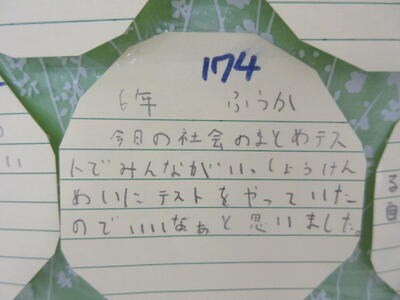 174
6年 ふうか
今日の社会のまとめテス
トでみんながいっしょうけん
めいにテストをやっていた
のでいいなぁと思いました。